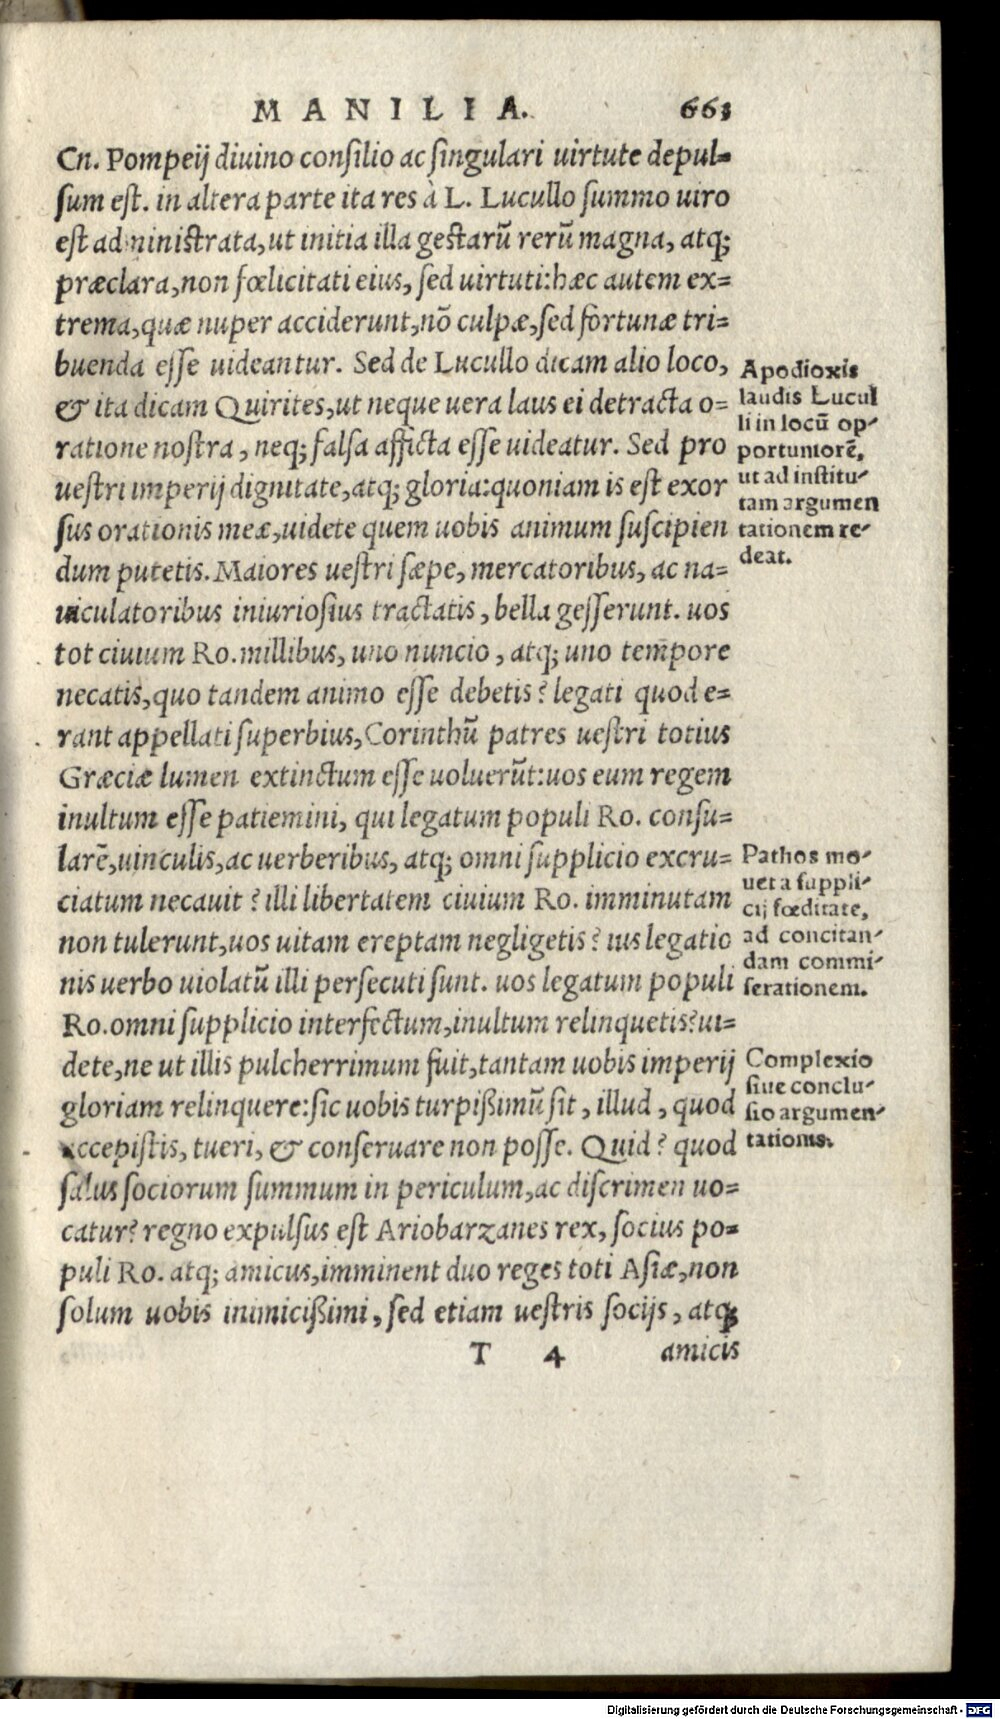 MANILIA. 663
Cn. Pompeij diuino consilio ac singulari uirtute depul=
sum est. in altera parte ita res à L. Lucullo summo uiro
est administrata, ut initia illa gestarũ rerũ magna, atq;
præclara, non fœlicitati eius, sed uirtuti: hæc autem ex=
trema, quæ nuper acciderunt, nõ culpæ, sed fortunæ tri=
buenda esse uideantur. Sed de Lucullo dicam alio loco,
& ita dicam Quirites, ut neque uera laus ei detracta o=
ratione nostra, neq; falsa afficta esse uideatur. Sed pro
uestri imperij dignitate, atq; gloria: quoniam is est exor
sus orationis meæ, uidete quem uobis animum suscipien
dum putetis. Maiores uestri sæpe, mercatoribus, ac na=
uiculatoribus iniuriosius tractatis, bella gesserunt. uos
tot ciuium Ro. millibus, uno nuncio, atq; uno tempore
necatis, quo tandem animo esse debetis? legati quod e=
rant appellati superbius, Corinthũ patres uestri totius
Græciæ lumen extinctum esse uoluerũt: uos eum regem
inultum esse patiemini, qui legatum populi Ro. consu=
larẽ, uinculis, ac uerberibus, atq; omni supplicio excru=
ciatum necauit? illi libertatem ciuium Ro. imminutam
non tulerunt, uos uitam ereptam negligetis? ius legatio
nis uerbo uiolatũ illi persecuti sunt. uos legatum populi
Ro. omni supplicio interfectum, inultum relinquetis? ui=
dete, ne ut illis pulcherrimum fuit, tantam uobis imperij
gloriam relinquere: sic uobis turpißimũ sit, illud, quod
accepistis, tueri, & conseruare non posse. Quid? quod
salus sociorum summum in periculum, ac discrimen uo=
catur? regno expulsus est Ariobarzanes rex, socius po=
puli Ro. atq; amicus, imminent duo reges toti Asiæ, non
solum uobis inimicißimi, sed etiam uestris socijs, atq;
T 4 amicis
Apodioxis
laudis Lucul
li in locũ op-
portuniorẽ,
ut ad institu-
tam argumen
tationem re-
deat.
Pathos mo-
uet a suppli-
cij fœditate,
ad concitan-
dam commi-
serationem.
Complexio
siue conclu-
sio argumen-
tationis.
Digitalisierung gefördert durch die Deutsche Forschungsgemeinschaft - DFG